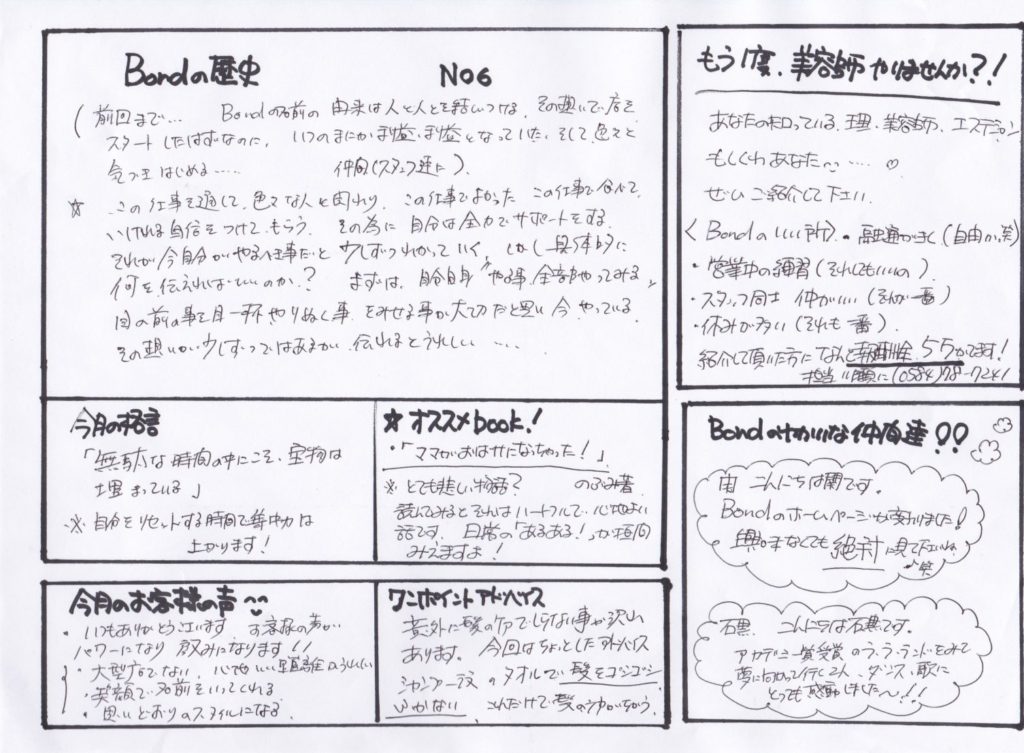 Bondの歴史 NO6
(前回まで… Bondの名前の由来は人と人とを結いつける、その想いで店を
スタートしたはずなのに、いつのまにか利益・利益となっていた、そして色々と
気づきはじめる…… 仲間(スタッフ達に)
☆ この仕事を通して、色々な人と関わり、この仕事でよかった この仕事で食べて
いける自信をつけてもらう、その為に自分は全力でサポートをする、
それが今自分がやるべき事だと少しずつわかっていく、しかし具体的に
何を伝えればいいのか? まずは、自分自身がやる事、全部やってみる、
目の前の事を目一杯やりぬく事をみせる事が大切だと思い今やっている
その想いが少しずつではあるが、伝わるとうれしい……
今月の格言
「無駄な時間の中にこそ、宝物は
埋まっている」
※ 自分をリセットする時間で集中力は
上がります!
★オススメbook!
・「ママがおばけになっちゃった!」
※ とても悲しい物語? のぶみ著
読んでみるとそれはハートフルで、心地よい
話です、日常の「あるある!」が垣間
みえますよ!
今月のお客様の声
・いつもありがとうございます、お客様の声が
パワーになり励みになります!!
・大型店でない、心地いい距離がうれしい
・笑顔で名前をいってくれる
・思いどおりのスタイルになる、
ワンポイントアドバイス
意外に髪のケアでしらない事が沢山
あります。今回はちょっとしたアドバイス
シャンプー後のタオルで、髪をゴシゴシ
ふかない これだけで髪のツヤがちがう、
もう1度、美容師やりませんか?!
あなたの知っている、理・美容師、エステシャン
もしくわあなた〜…… ♡
ぜひご紹介して下さい
〈Bondのいい所〉・融通がきく(自由か、笑)
・営業中の練習(それしてもいいの)
・スタッフ同士 仲がいい(それが一番)
・休みが多い(それも一番)
紹介して頂いた方になんと報酬金、5万がでます!
担当 川瀬に(0584)78-7241
Bondのゆかいな仲間達!!
宙 こんにちは関です。
Bondのホームページが変わりました!
興味なくても絶対に見て下さいね
笑
石黒 こんにちは石黒です。
アカデミー賞受賞のラ・ラ・ランドをみて
夢に向かって行く2人、ダンス、歌に
とっても感動しました〜!!